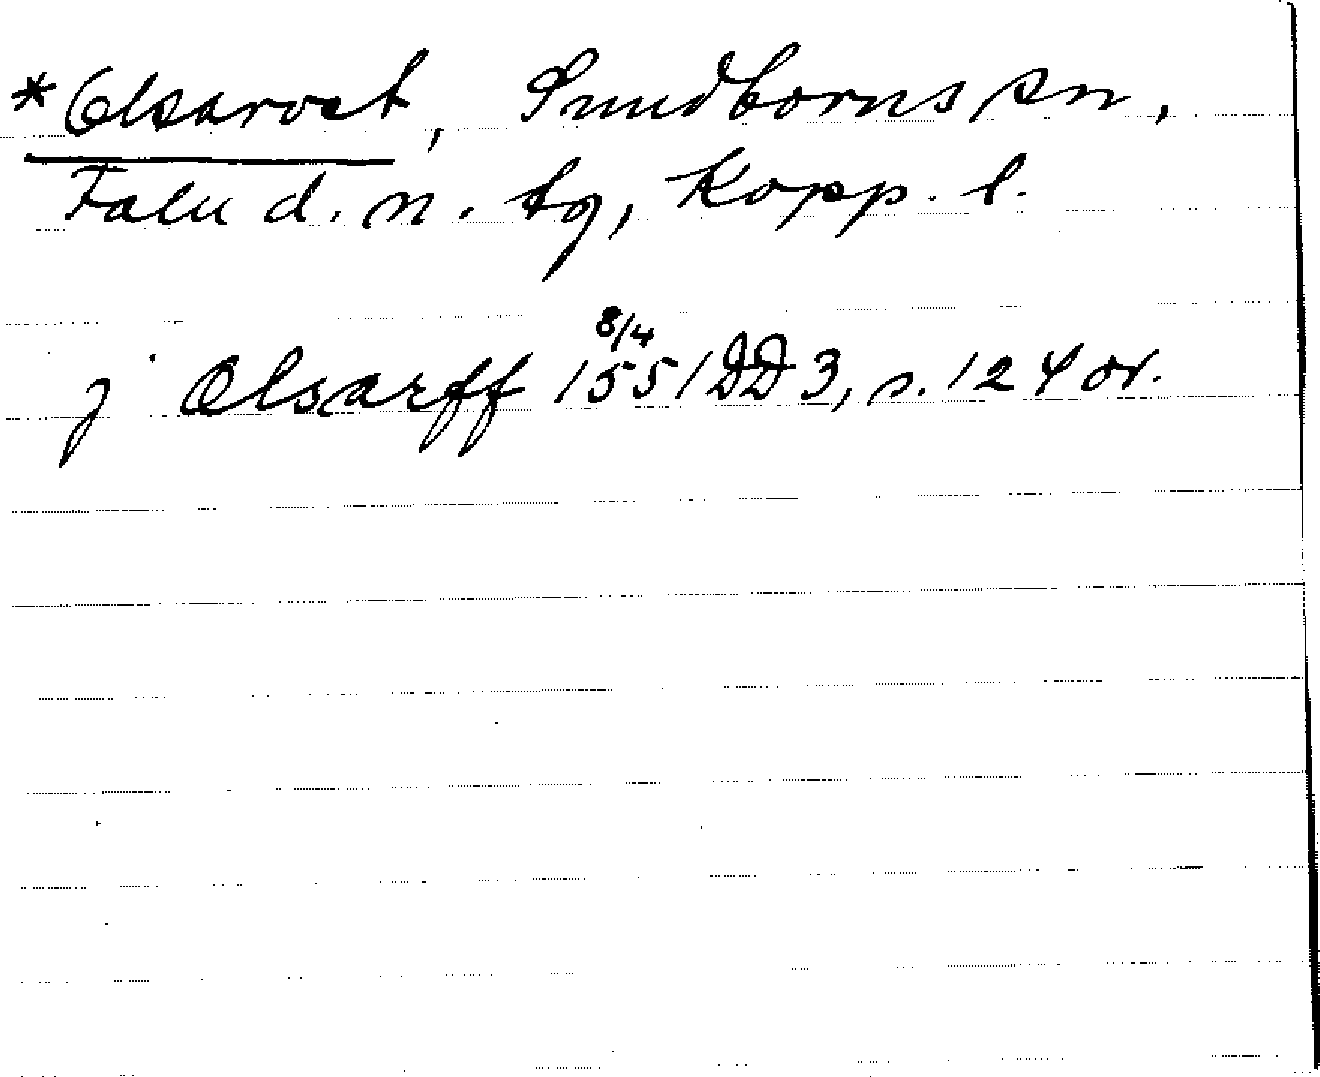 *Olsarvet, Sundborns sn,
Falu d. n. tg, Kopp. l.
j Olsarff 8/4 1551 DD 3, s. 124 or.